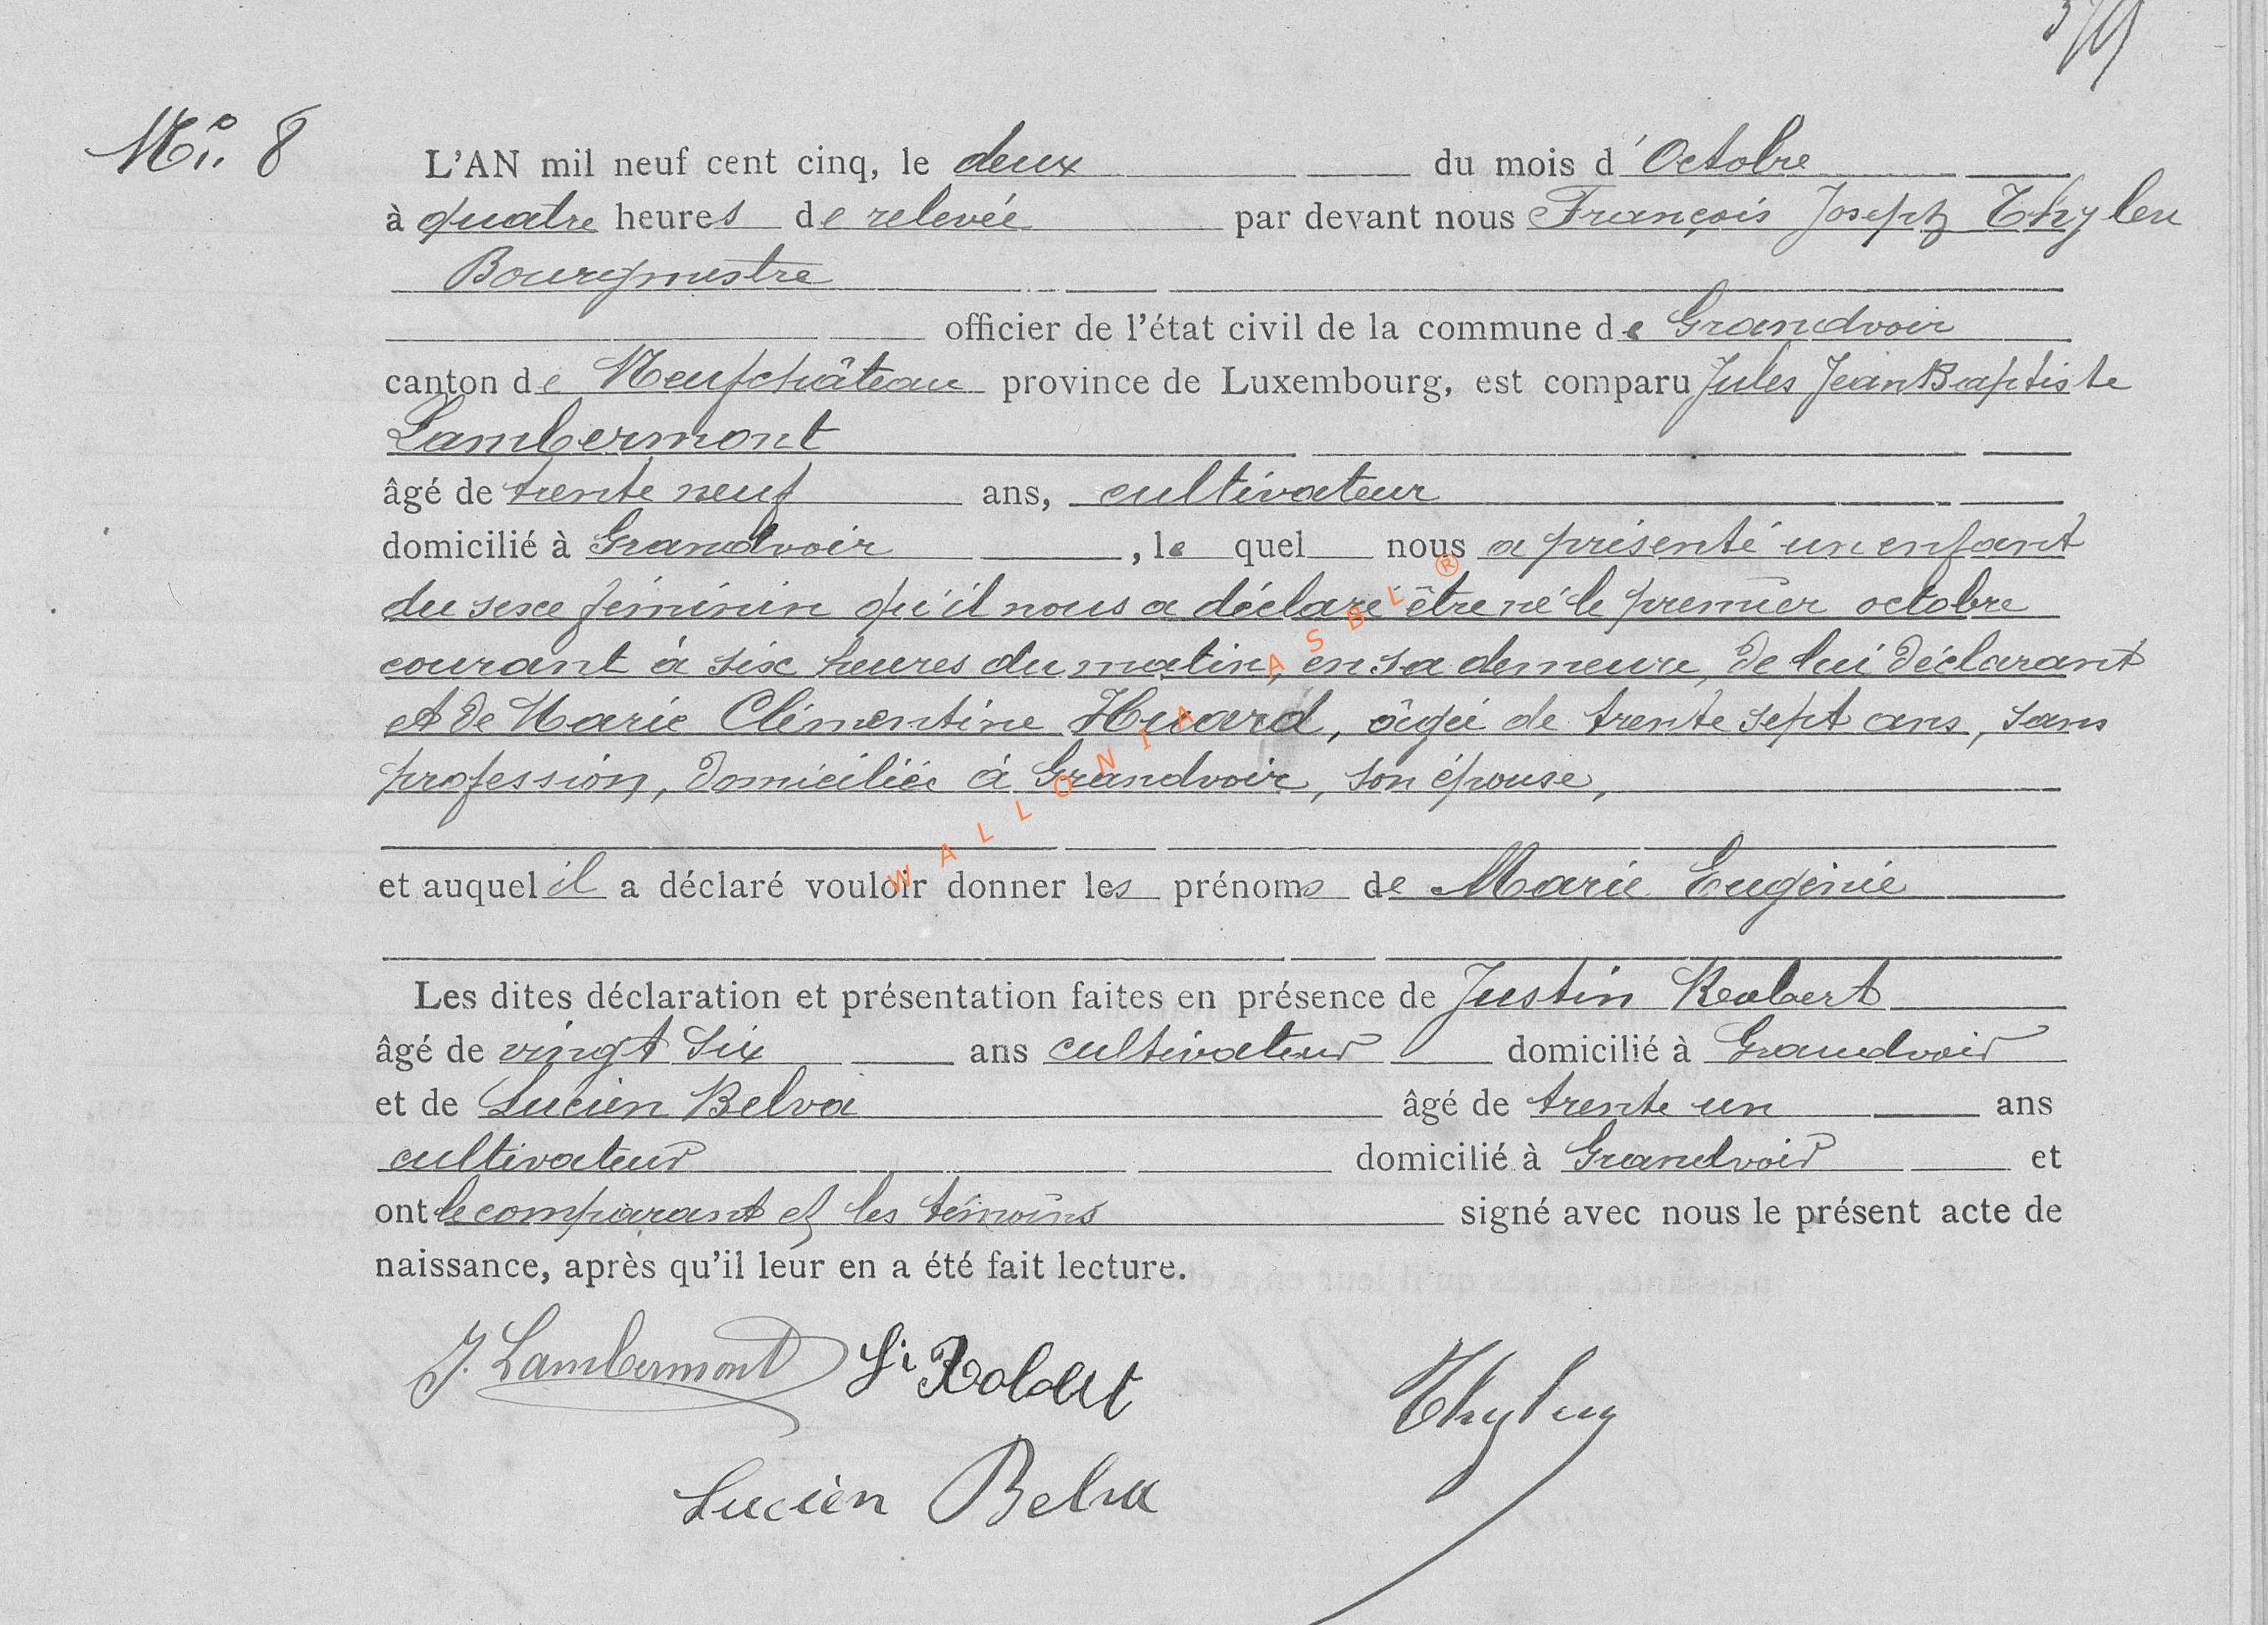 N° 8
L'AN mil neuf cent cinq, le deux du mois d'Octobre
à quatre heures de relevée par devant nous François Joseph Thylen
Bourgmestre
officier de l'état civil de la commune de Grandvoir
canton de Neufchâteau province de Luxembourg, est comparu Jules Jean Baptiste
Lambermont
âgé de trente neuf ans, cultivateur
domicilié à Grandvoir, le quel nous a présenté un enfant
du sexe féminin qu'il nous a déclaré être né le premier octobre
courant à six heures du matin, en sa demeure, de lui déclarant
et de Marie Clémentine Huard, âgée de trente sept ans, sans
profession, domiciliée à Grandvoir, son épouse,
et auquel il a déclaré vouloir donner les prénoms de Marie Eugénie
Les dites déclaration et présentation faites en présence de Justin
âgé de vingt six ans cultivateur domicilié à Grandvoir
et de Lucien Belva âgé de trente un ans
cultivateur domicilié à Grandvoir et
ont le comparant et les témoins signé avec nous le présent acte de
naissance, après qu'il leur en a été fait lecture.
J. Lambermont
Lucien Belva
WALLONIA ASBL ®